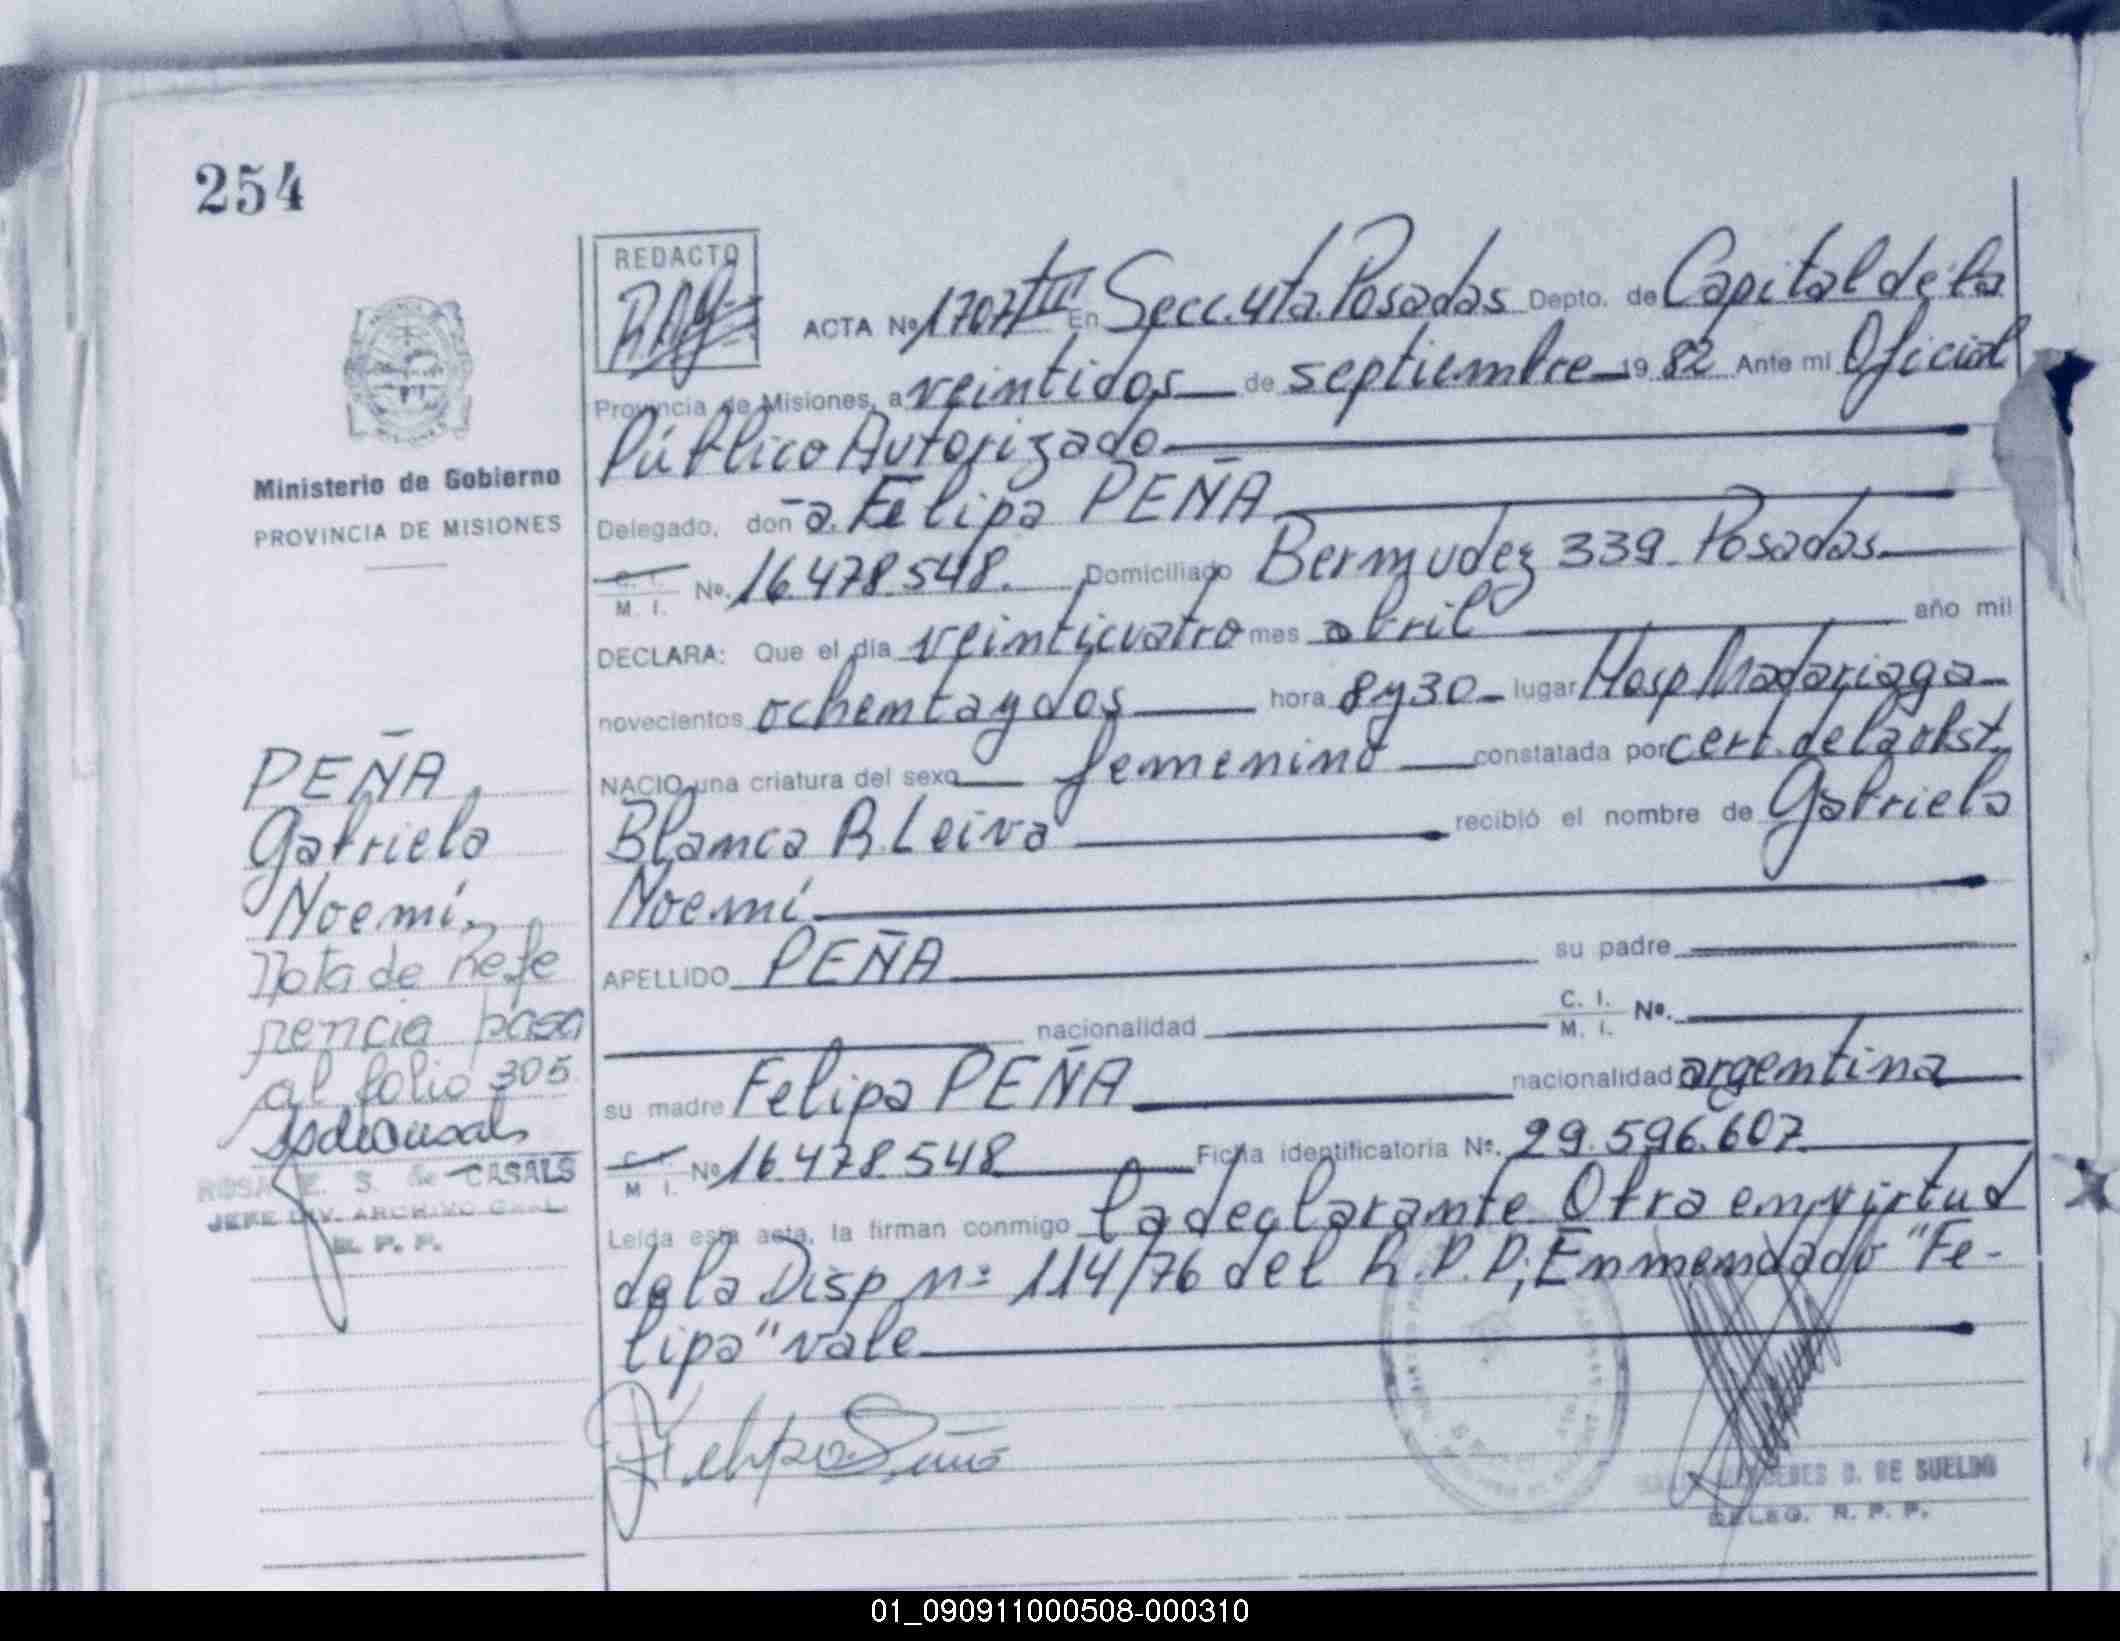 254
REDACTO
ACTA Nº 1707 tIII En Secc. 4ta. Posadas Depto. de Capital de la
Provincia de Misiones, a veintidos de septiembre 1982 Ante mi Oficial
Público Autorizado
Delegado, don a. Felipa PEÑA
C. I. M. I. Nº. 16.478.548. Domiciliado Bermudez 339. Posadas
DECLARA: Que el día veinticuatro mes abril año mil
novecientos ochentaydos hora 8y30 lugar Hosp Madariaga
NACIO una criatura del sexo femenino constatada por cert. de la obst.
Blanca R. Leiva recibió el nombre de Gabriela
Noemí
APELLIDO PEÑA su padre
nacionalidad C. I. M. I. Nº.
su madre Felipa PEÑA nacionalidad argentina
C. I. M I. Nº 16.478.548 Ficha identificatoria Nº. 29.596.607
Leída esta acta, la firman conmigo la declarante. Obra en virtud
de la Disp nº 114/76 del R.P.P; Enmendado "Fe-
lipa" vale
Felipa Peña
DEDES D. DE SUELDO
DELEG. R. P. P.
Ministerio de Gobierno
PROVINCIA DE MISIONES
PEÑA
Gabriela
Noemí.
Nota de Refe
rencia pasa
al folio 305
ROSA E. S. de CASALS
JEFE DIV. ARCHIVO GRAL.
R. P. P.
01_090911000508-000310